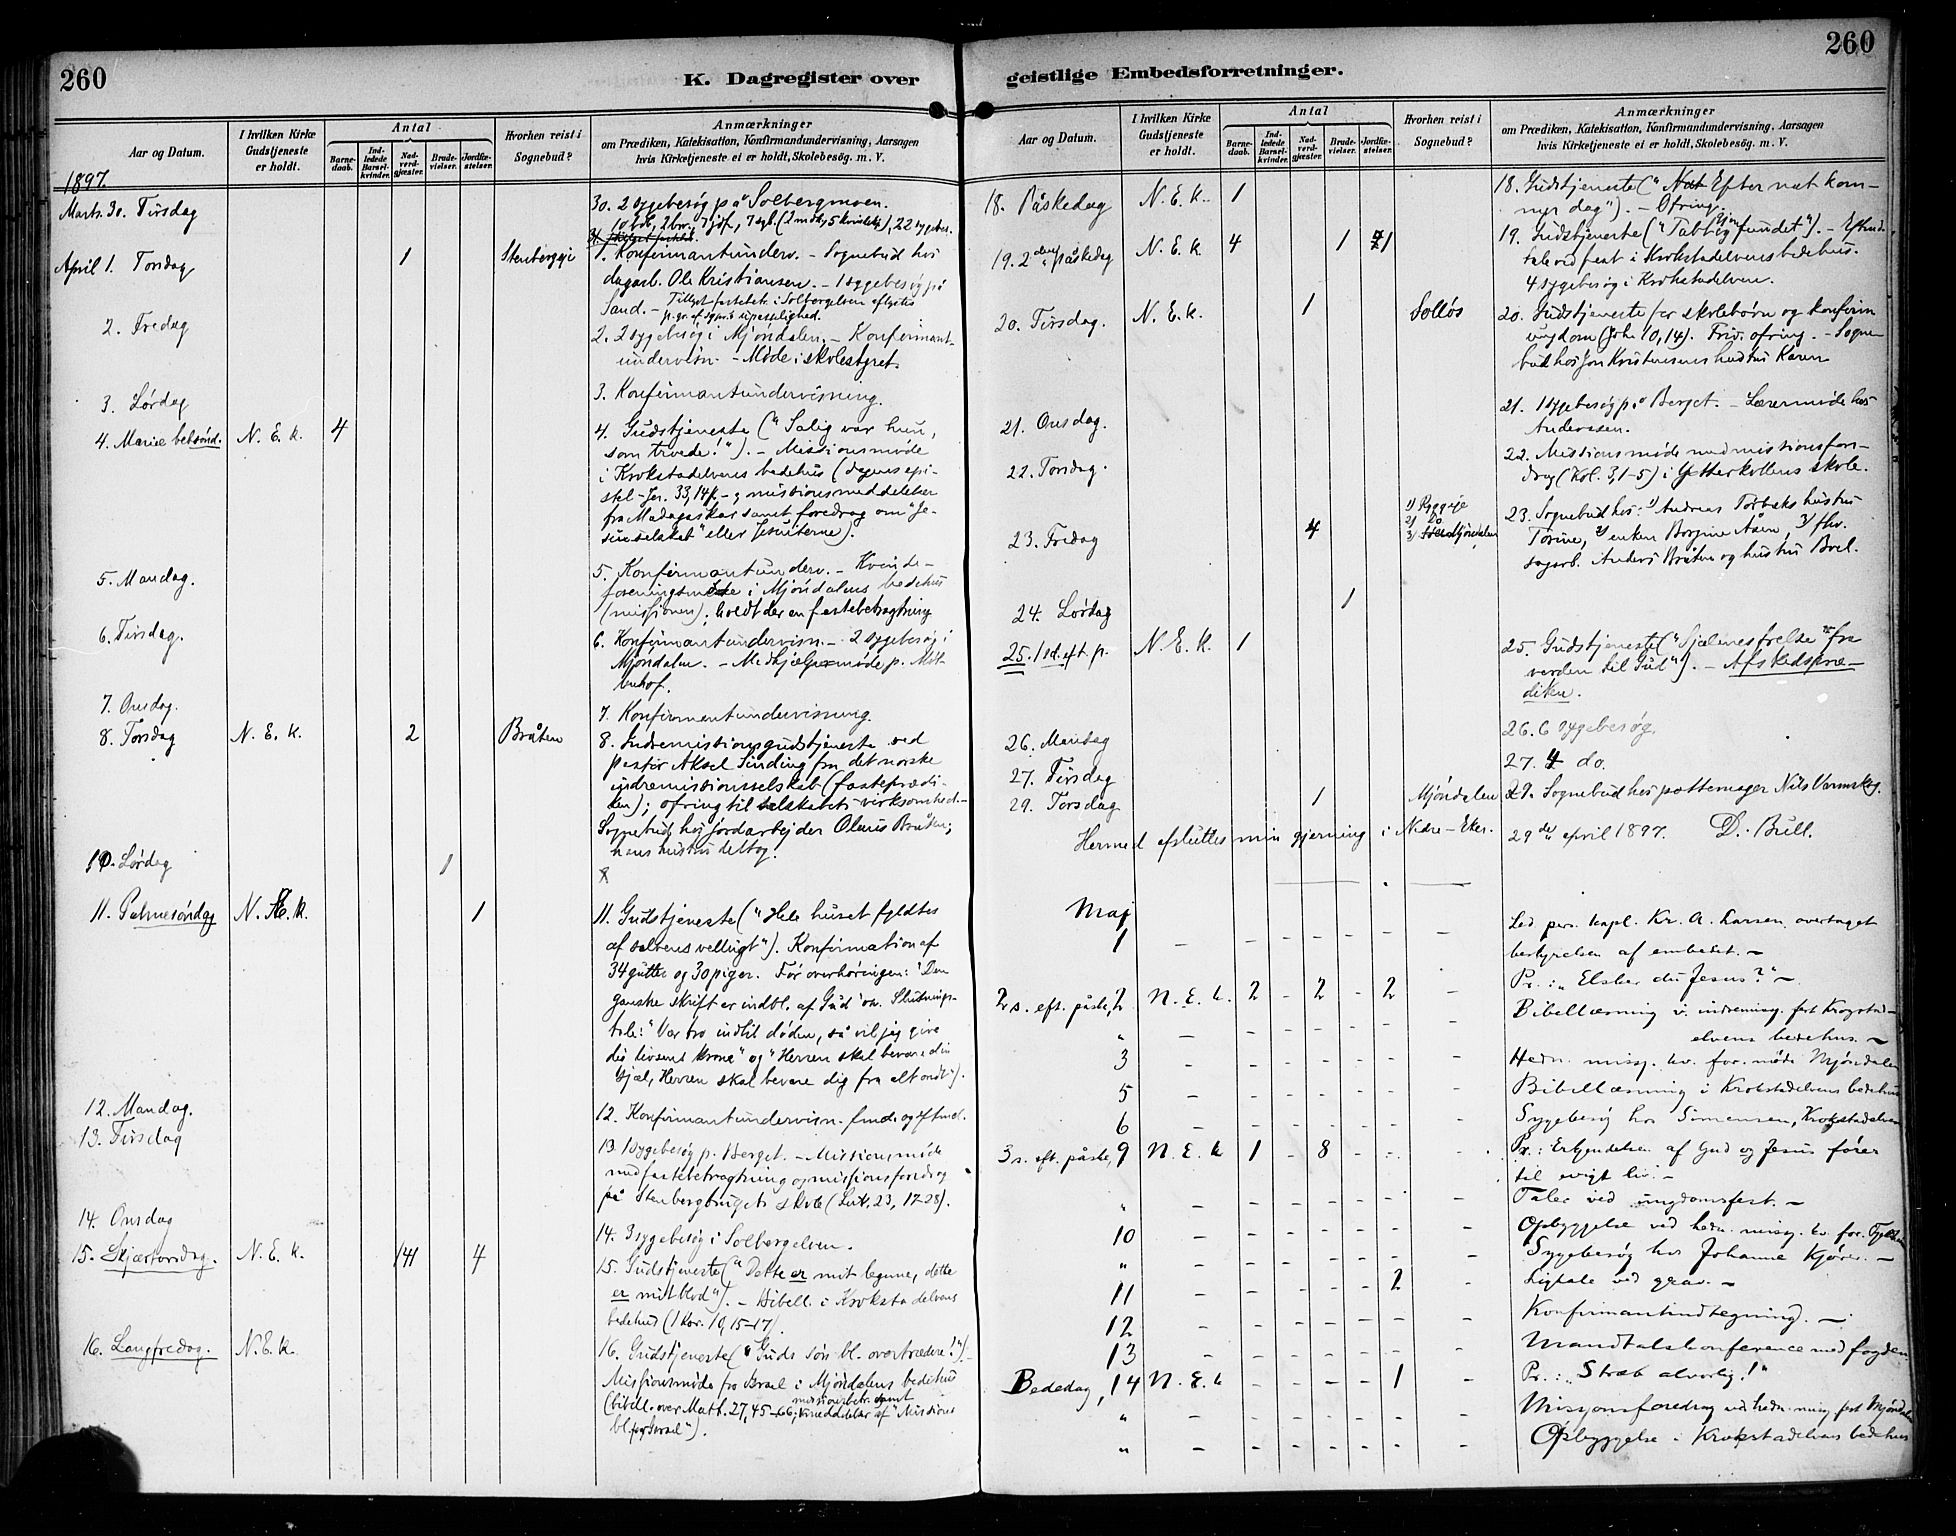 260
K. Dagregister over
Aar og Datum.
I hvilken Kirke Gudstjeneste er holdt.
Antal
Barnedaab.
Indledede Barselkvinder.
Nadverdgjæster.
Brudevielser.
Jordfæstelser.
Hvorhen reist i Sognebud?
Anmærkninger
om Prædiken, Katekisation, Konfirmandundervisning, Aarsagen
hvis Kirketjeneste ei er holdt, Skolebesög. m. V.
1897.
Marts. 30. Tirsdag
30. 2 sygebesøg på Solbergmoen.
April 1. Torsdag 1 Stenbergeje 1. Konfirmantunderv. – Sognebud hos
dagarb. Ole Kristiansen. – 1 sygebesøg på
Sand. –
2. Fredag 2. 2 sygebesøg i Mjøndalen. – Konfirmant-
undervisn. – Møde i skolestyret.
3. Lørdag 3. Konfirmantundervisning.
4. Mariæ bebønd. N. E. k. 4 4. Gudstjeneste („Salig var hun,
som troede!“). – Missionsmøde
i Krokstadelvens bedehus (dagens epi-
stel – Jer. 33,14 f. – og missionsmeddelelser
fra Madagaskar samt foredrag om „Je-
suselskab“ eller Jesuiterne).
5. Mandag. 5. Konfirmantunderv. – Kvinde-
foreningsmøte i Mjøndalens bedehus
(missionen); holdt der en fastebetragtning
6. Tirsdag. 6. Konfirmantundervisn. – 2 sygebesøg i
Mjøndalen. – Medhjælpermøde p.
7. Onsdag. 7. Konfirmantundervisning.
8. Torsdag N. E. k. 2 Bråten 8. Indremissionsgudstjeneste ved
pastor Aksel Sinding fra det norske
indremissionsselskab (fasteprædi-
ken); ofring til selskabets virksomhed. –
Sognebud hos jordarbejder Olaus Bråten;
hans hustru deltog.
10. Lørdag 1
11. Palmesøndag N. E. k. 1 11. Gudstjeneste („Hele huset fyldtes
af salvens vellugt“). Konfirmation af
34 gutter og 30 piger. Før overhøringen: „Den
ganske skrift er indbl. af Gud“ osv. Slutnings-
tale: „Vær tro indtil døden, så vil jeg give
dig livsens krone“ og „Herren skal bevare din
sjæl, Herren skal bevare dig fra alt ondt“).
12. Mandag. 12. Konfirmantundervisn.
13. Tirsdag 13. 1 sygebesøg p. Berget. – Missionsmøde
med fastebetragtning og missionsforedrag
på Stenbergbrugets skole (Luk. 23, 17-28).
14. Onsdag 14. 3 sygebesøg i Solbergelven.
15. Skjærtorsdag. N. E. k. 141 4 15. Gudstjeneste („Dette er mit legeme, dette
er mit blod“). – Bibell. i Krokstadelvens
bedehus (1 Kor. 10, 15–17).
16. Langfredag. N. E. k. 16. Gudstjeneste („Guds søn bl. overtrædere!“). –
Missionsmøde for Israel i Mjøndalens bedehus
(bibell. over Matt. 27, 45–66; missionsbetr. samt meddelelser af „Missions-
bl. for Israel“).
260
geistlige Embedsforretninger.
Aar og Datum.
I hvilken Kirke Gudstjeneste er holdt.
Antal
Barnedaab.
Indledede Barselkvinder.
Nadverdgjæster.
Brudevielser.
Jordfæstelser.
Hvorhen reist i Sognebud?
Anmærkninger
om Prædiken, Katekisation, Konfirmandundervisning, Aarsagen
hvis Kirketjeneste ei er holdt, Skolebesög. m. V.
18. Påskedag N. E. k. 1 18. Gudstjeneste („Efter nat kom-
mer dag“). – Ofring.
19. 2den påskedag N. E. k. 4 1 1 19. Gudstjeneste („Tabt og igjen fundet“). –
tale ved fest i Krokstadelvens bedehus.
4 sygebesøg i Krokstadelven.
20. Tirsdag. N. E. k. 1 Solløs 20. Gudstjeneste for skolebørn og konfirm.
ungdom (Joh. 10,14). Friv. ofring. – Sogne-
bud hos Jon Kristensens hustru Karen
21. Onsdag. 21. 1 sygebesøg på Berget. – Lærermøde hos
Anderssen.
22. Torsdag. 22. Missionsmøde med missionsfore-
drag (Kol. 3,1–5) i Ytterkollens skole.
23. Fredag 4 1) Ryggeje
2) Do
3) Mjøndalen
23. Sognebud hos: 1) Andreas Torbeks hustru
Torine, 2) enken Borgine Aasen, 3) fhv.
dagarb. Anders Bråten og hustru Brel.
24. Lørdag 1
25. 1 sd. eft. p. N. E. k. 1 25. Gudstjeneste („Sjælenes frelse“ fra
verden til Gud“). – Afskedspræ-
diken.
26. Mandag 26. 6 sygebesøg.
27. Tirsdag 27. 4 do.
29. Torsdag 1 Mjøndalen 29. Sognebud hos pottemager Nils Varnskog.
Hermed afsluttes min gjerning i Nedre-Eker. 29de april 1897. D. Bull.
Maj
1 – – – – – – – Led pers. kapl. Kr. A. Larsen overtaget
bestyrelsen af embedet. –
2 s. eft. påske, 2 N. E. k. 2 – 2 – 2 – Pr.: „Elsker du Jesus?“ –
„ – – – – – – – Bibellæsning v. indremiss. fest Krogstad-
elvens bedehus. –
3 – – – – – – – Hedn. missj. kv. for. møde Mjøndalen
5 – – – – – – – Bibellæsning i Krokstadelvens bedehus
6 – – – – – – – Sygebesøg hos Simensen, Krokstadelven
3 s. eft. påske, 9 N. E. k 1 – 8 – – – Pr.: Erkjendelsen af Gud og Jesus fører
til evigt liv. –
„ – – – – – – – Taler ved ungdomsfest. –
10 – – – – – – – Opbyggelse ved hedn. missj. kv. for.
„ – – – – – – – Sygebesøg hos Johanne Kjører. –
11 – – – – – 2 – Ligtale ved grav. –
12 – – – – – – – Konfirmantindtegning. –
13 – – – – – – – Mandtalskonference med fogden
Bededag, 14 N. E. k – – – – 1 – Pr.: „Stræb alvorlig!“
„ – – – – – – – Missjonsforedrag ved hedn. missj. fest Mjøndalen
„ – – – – – – – Opbyggelse i Krokstadelvens bedehus